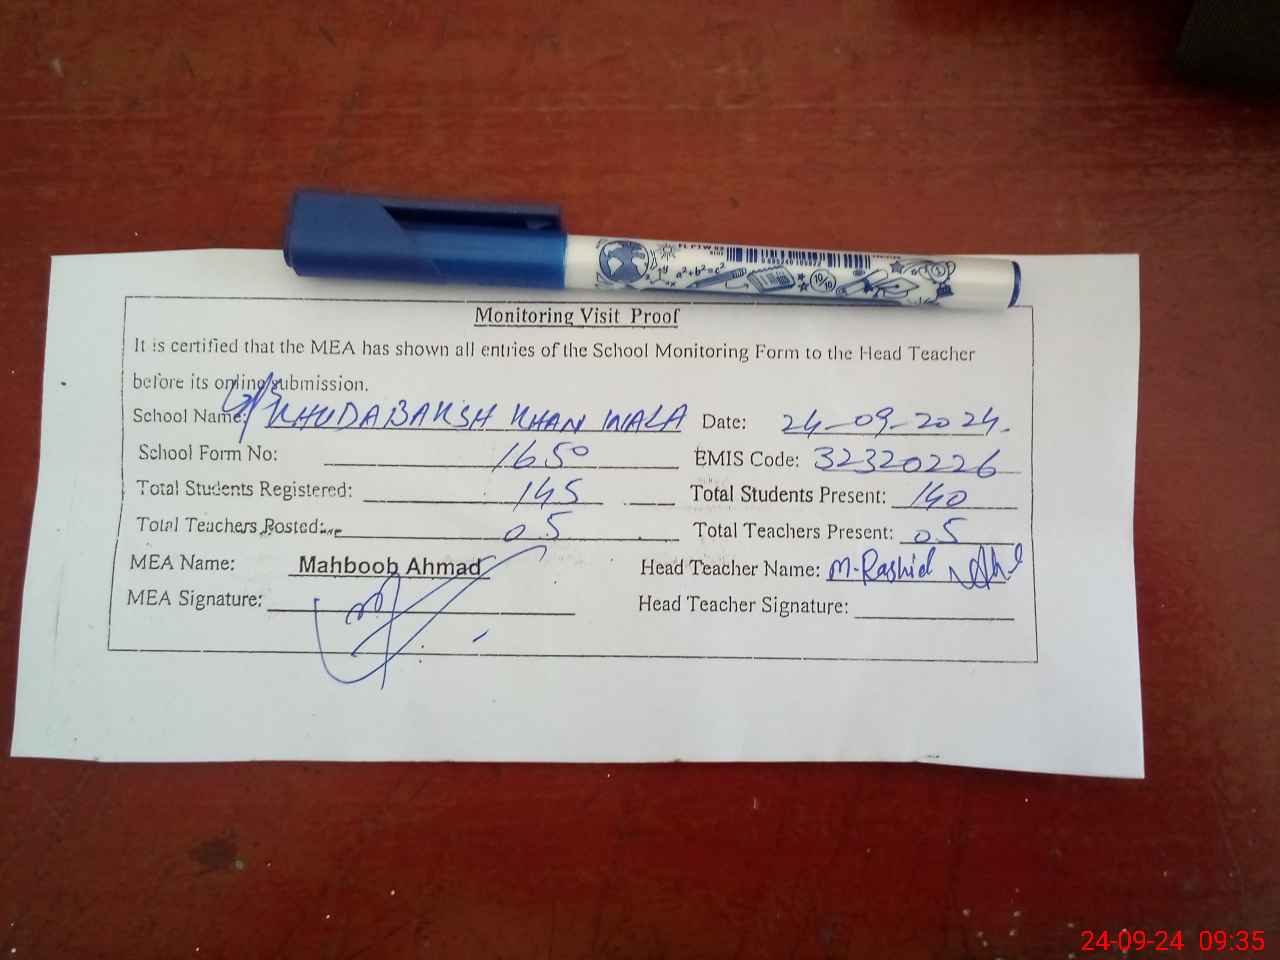 a²+b²=c²
10/10
Monitoring Visit Proof
It is certified that the MEA has shown all entries of the School Monitoring Form to the Head Teacher
before its online submission.
School Name: KHUDABAKSH KHAN WALA Date: 24-09-2024.
School Form No: 1650 EMIS Code: 32320226
Total Students Registered: 145 Total Students Present: 140
Total Teachers Posted: 05 Total Teachers Present: 05
MEA Name: Mahboob Ahmad Head Teacher Name: M. Rashid
MEA Signature: Head Teacher Signature:
24-09-24 09:35